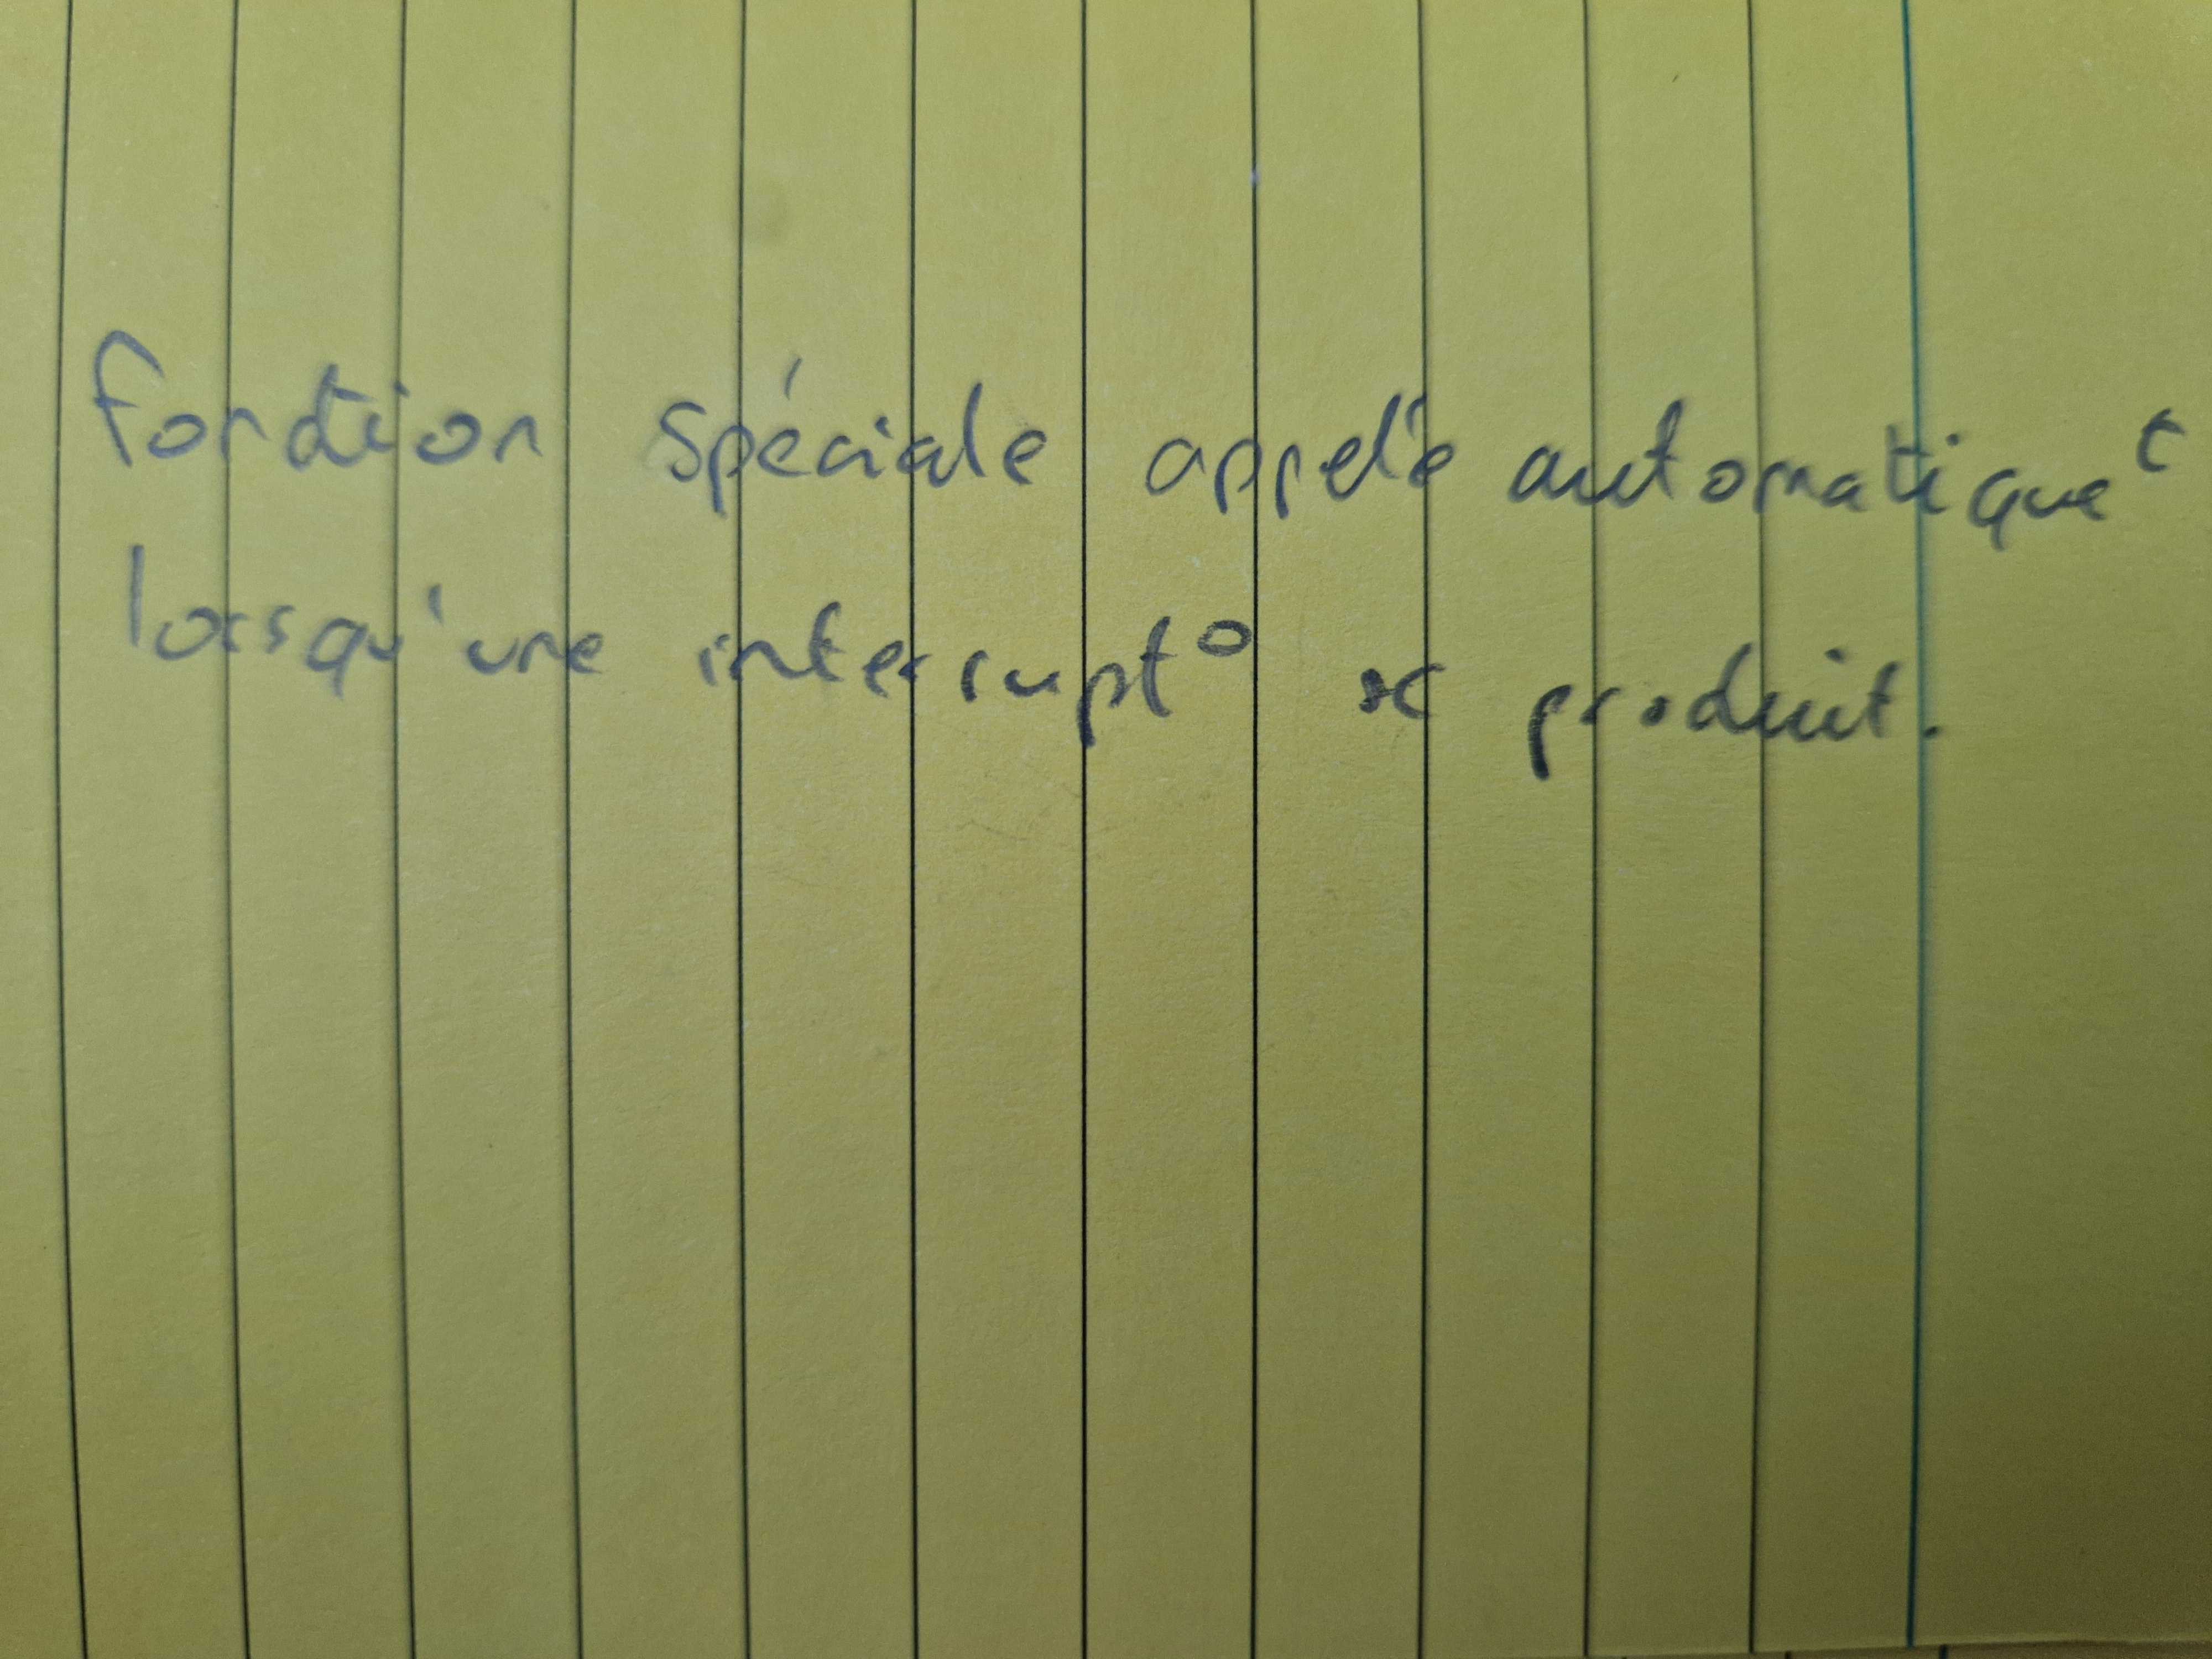 Fonction spéciale appelée automatiqueᵗ
lorsqu'une interrupt° se produit.